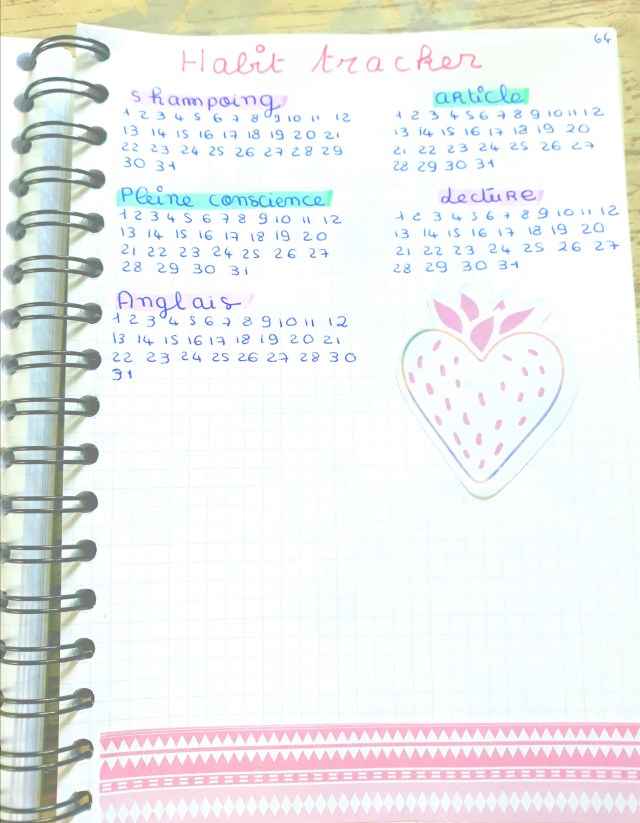 64
Habit tracker
shampoing
1 2 3 4 5 6 7 8 9 10 11 12
13 14 15 16 17 18 19 20 21
22 23 24 25 26 27 28 29
30 31
article
1 2 3 4 5 6 7 8 9 10 11 12
13 14 15 16 17 18 19 20
21 22 23 24 25 26 27
28 29 30 31
Pleine conscience
1 2 3 4 5 6 7 8 9 10 11 12
13 14 15 16 17 18 19 20
21 22 23 24 25 26 27
28 29 30 31
Lecture
1 2 3 4 5 6 7 8 9 10 11 12
13 14 15 16 17 18 19 20
21 22 23 24 25 26 27
28 29 30 31
Anglais
1 2 3 4 5 6 7 8 9 10 11 12
13 14 15 16 17 18 19 20 21
22 23 24 25 26 27 28 30
31